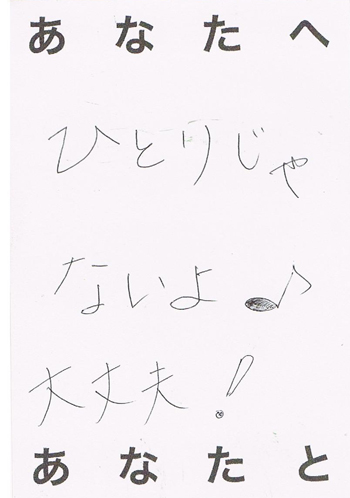 あなたへ
ひとりじゃ
ないよ♪
大丈夫!
あなたと